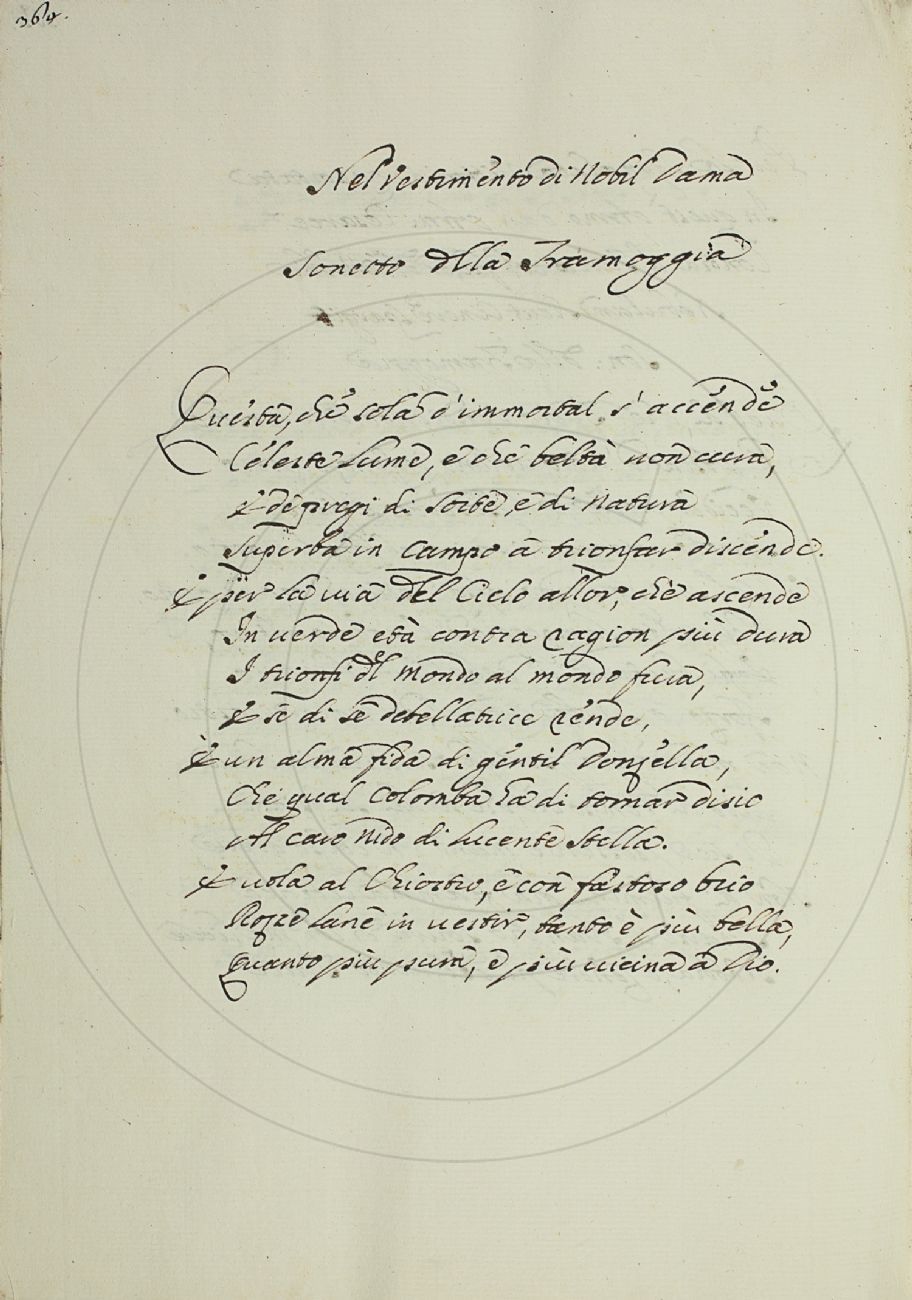 364.
Nel Vestimento di Nobil Dama
Sonetto della Tramoggia
Questa, che sola d'immortal s'accende
Celeste Lume, e che beltà non cura,
E de pregi di Sorte, e di Natura
Superba in Campo a trionfar discende.
E per la via del Cielo allor, che ascende
In verde età contra ragion più dura
I trionfi del Mondo al mondo fura,
E se di se debellatrice rende,
E un alma fida di gentil Donzella,
Che qual Colomba ha di tornar disio
Al caro Nido di Lucente Stella.
E vola al Chiostro, e con fastoso brio
Rozze Lane in vestir, tanto è più bella,
Quanto più pura, e più vicina a Dio.